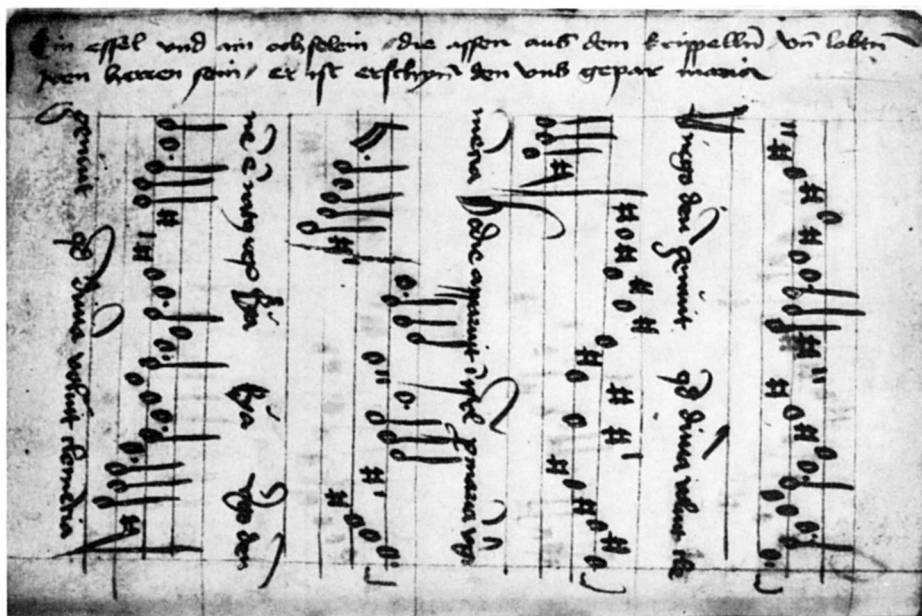 Ein essel vnd ain ochselein die assen aus dem krippelin vn̄ lobtn̄
iren herren sein er ist erschyn̄ den vns gepar maria
Virgo deū genuit qd diuina voluit cle
mencia Hodie apparuit ī isrl p maria virg
nē ē natus rex Eya Eya virgo deū
genuit qd diuina voluit clemēcia